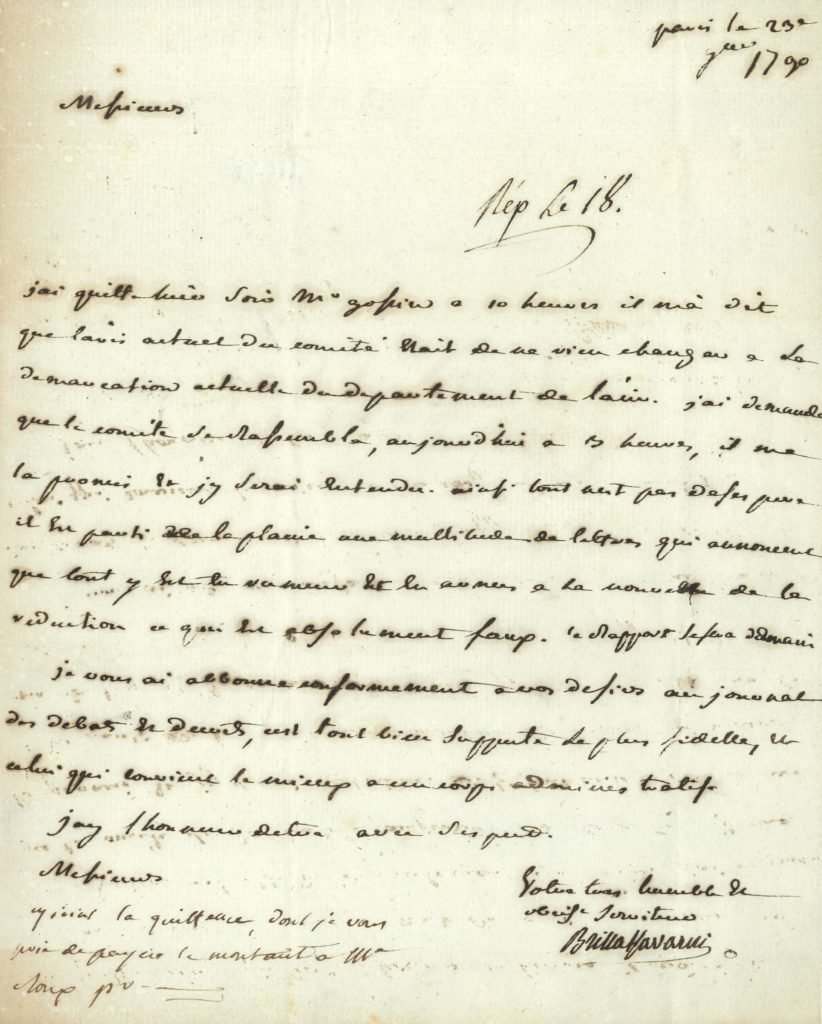 paris le 23e
9bre 1790
Messieurs
Rép Le 18.
jai quitté hier soir Mr gossin a 10 heures il ma dit
que lavis actuel du comité Etait de ne rien changer a La
demarcation actuelle du departement de lain. jai demandé
que le comité se Rassembla, aujourdhui a 5 heures, il me
la promis Et jy serai Entendu. ainsi tout nest pas desespere
il Est parti de la plaine une multitude de lettres qui annoncent
que tout y Est En rumeur Et En armes a La nouvelle de la
reduction ce qui Est absolument faux. le Rapport se fera demain
je vous ai abbonné conformement a vos desirs au journal
des debats Et decrets, cest tout bien supputé Le plus fidelle, Et
celui qui convient le mieux a un corps administratif.
jay lhonneur detre avec Respect.
Messieurs
Votre tres humble Et
obeisst Serviteur
Brillat Savarin
cy joint la quittence, dont je vous
prie de payer le montant a Mr
Roux pr